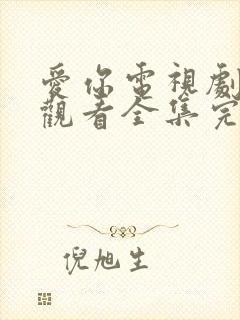 愛你電視劇
觀看全集完
倪旭生